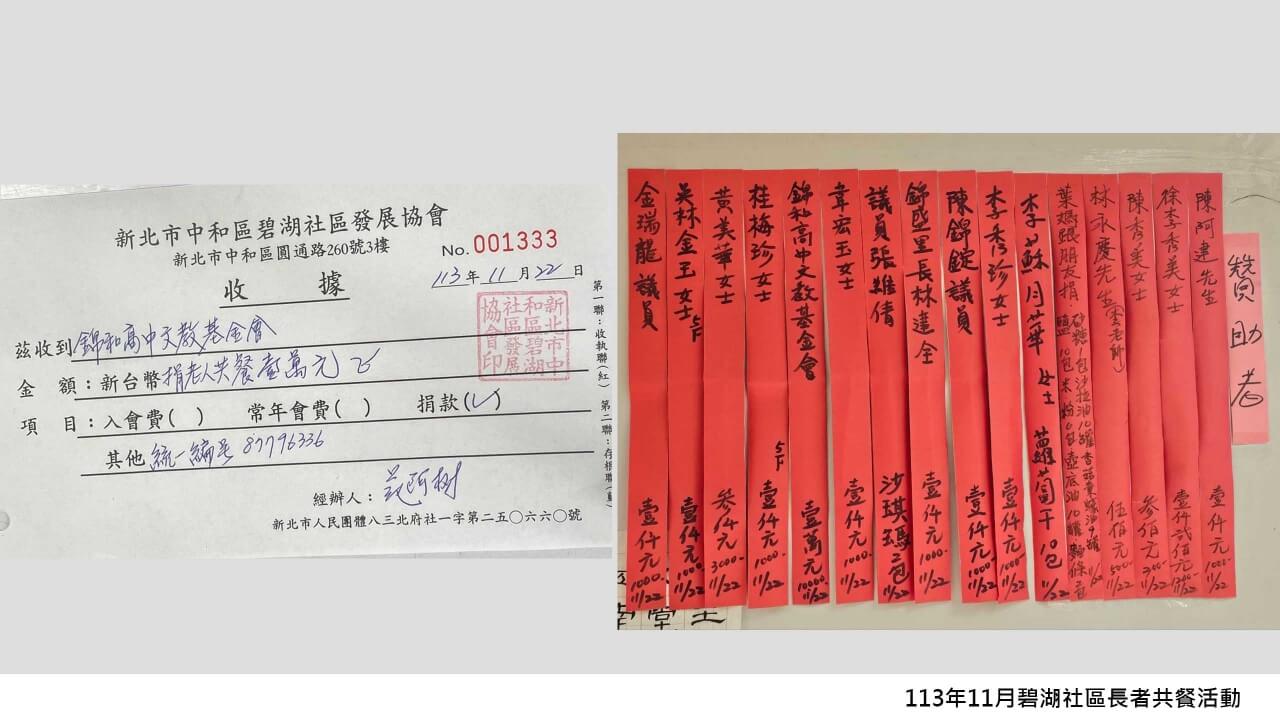 新北市中和區碧湖社區發展協會
新北市中和區圓通路260號3樓
No. 001333
收 據
113年11月22日
新北市中和區碧湖社區發展協會印
茲收到 錦和高中文教基金會
金 額：新台幣 捐老人共餐壹萬元
項 目：入會費( ) 常年會費( ) 捐款(✓)
其他 統一編号 87796336
經辦人：
新北市人民團體八三北府社一字第二五〇六六〇號
第一聯：收執聯(紅)
第二聯：存根聯(藍)
贊助者
陳阿建先生 壹仟元 1000- 11/22
徐李秀美女士 壹仟貳佰元 1200- 11/22
陳秀美女士 參佰元 300- 11/22
林永慶先生(雲老師) 伍佰元 500- 11/22
葉媽跟朋友捐 砂糖1包沙拉油10罐 11/22
李蘇月華女士 蘿蔔干10包 11/22
李秀珍女士 壹仟元 1000- 11/22
陳錦錠議員 壹仟元 1000- 11/22
錦盛里長林達全 壹仟元 1000- 11/22
議員張維倩 沙琪瑪二包 11/22
韋宏玉女士 壹仟元 1000- 11/22
錦和高中文教基金會 壹萬元 10000- 11/22
桂梅珍女士 5F 壹仟元 1000- 11/22
黃美華女士 參仟元 3000- 11/22
吳林金玉女士 5F 壹仟元 1000- 11/22
金瑞龍議員 壹仟元 1000- 11/22
113年11月碧湖社區長者共餐活動